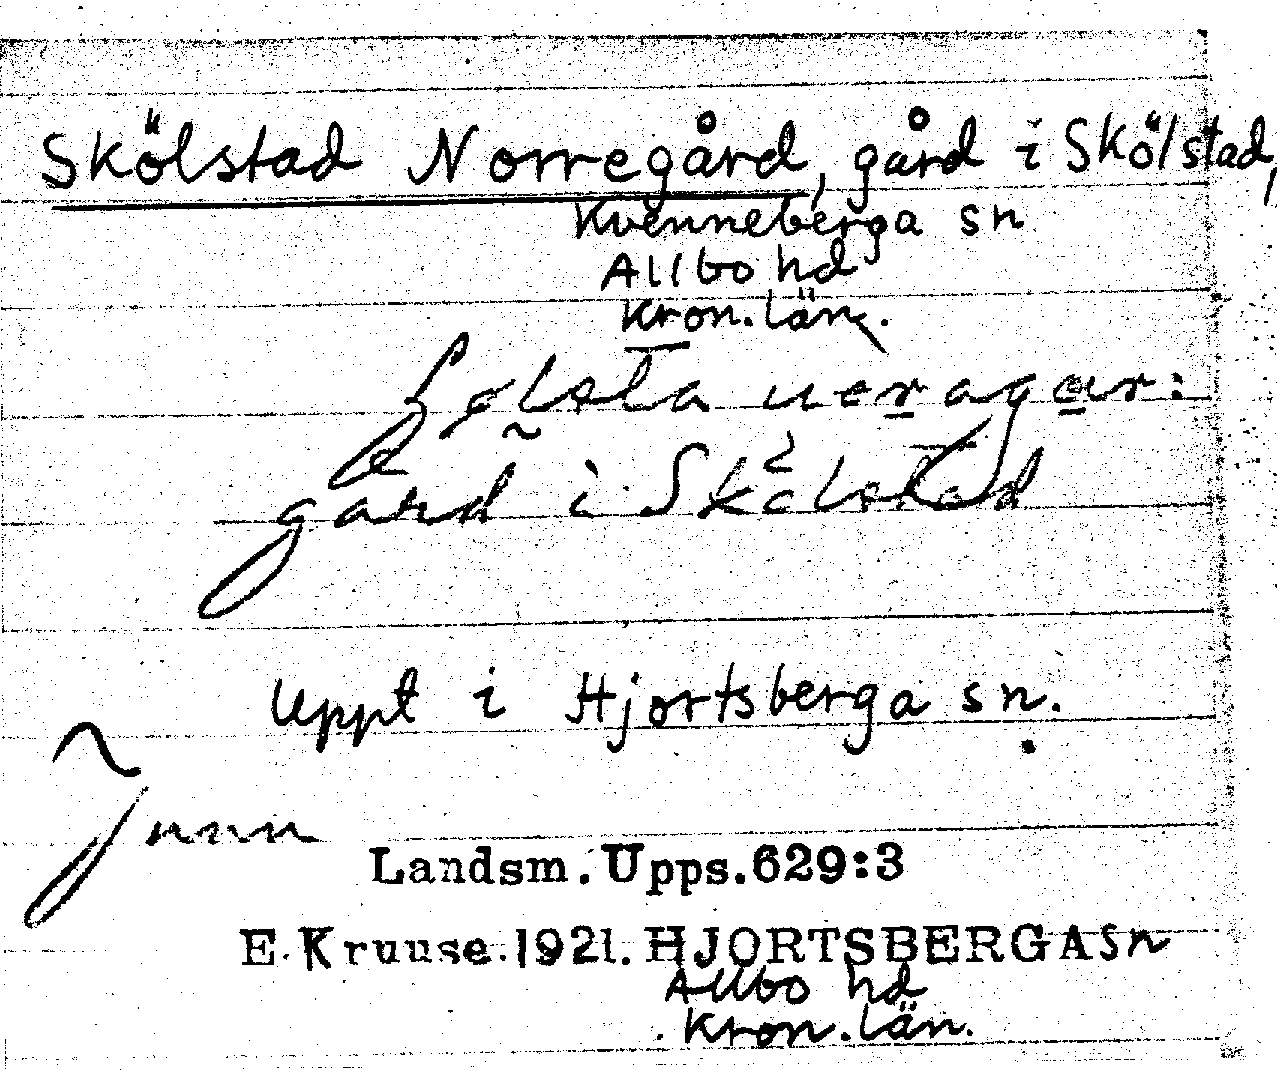 Skölstad Norregård, gård i Skölstad,
Kvenneberga sn
Allbo hd
Kron. län.
gård i Skölstad
Uppt i Hjortsberga sn.
Landsm. Upps. 629:3
E. Kruuse. 1921. HJORTSBERGA Sn
Allbo hd
Kron. län.